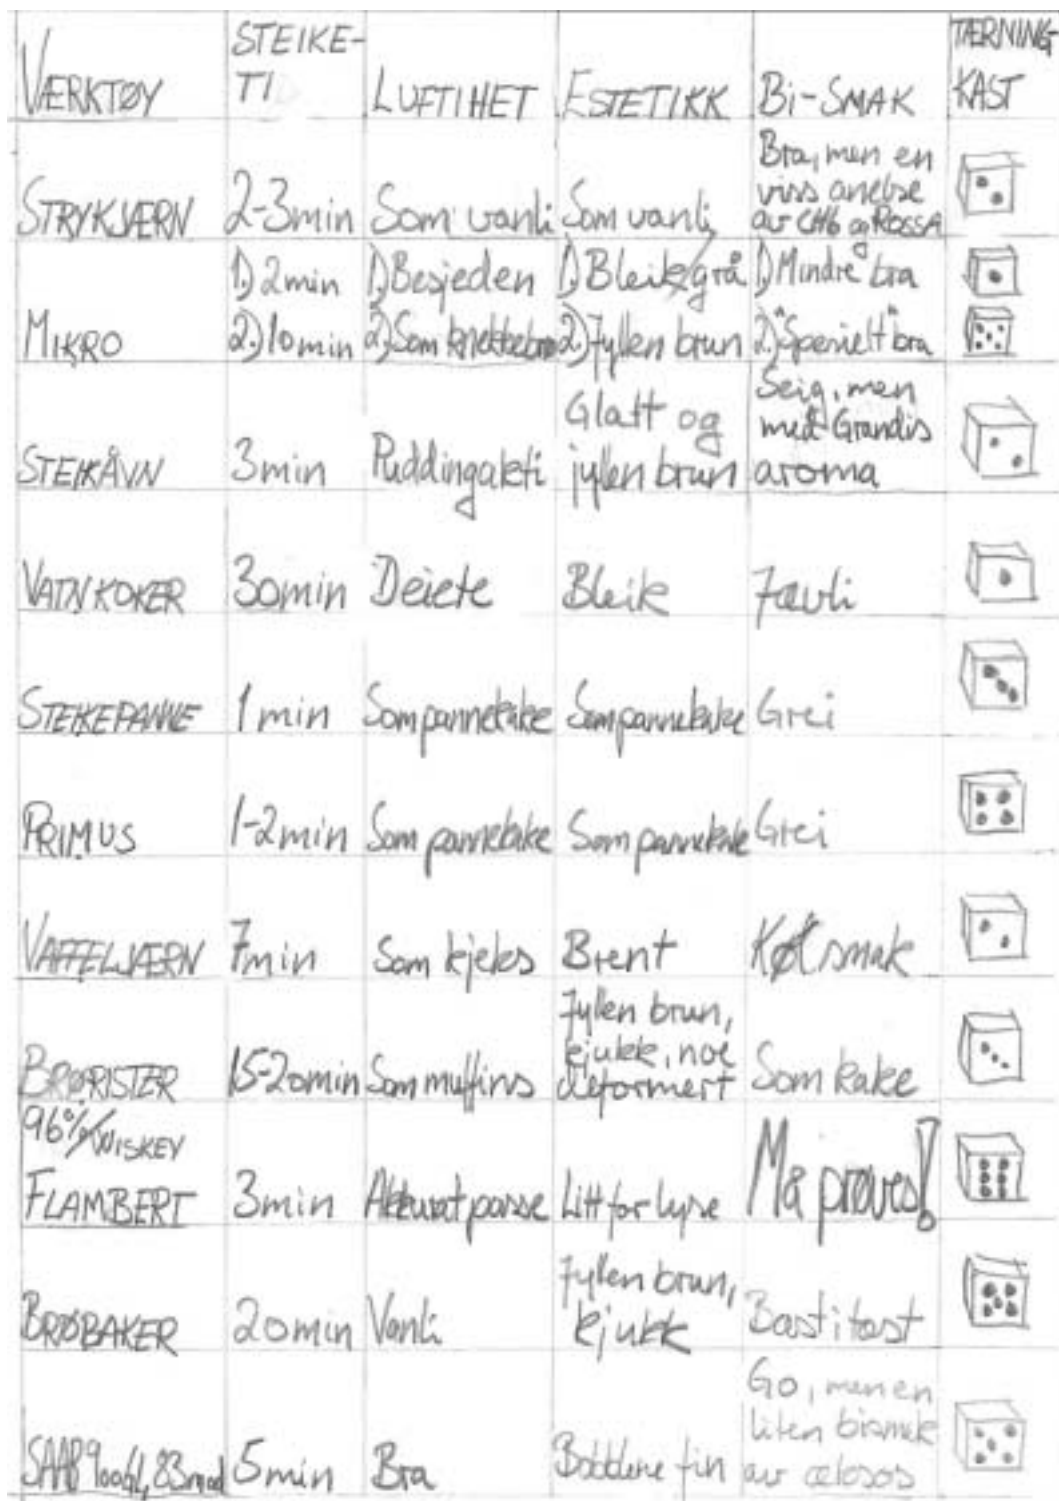 VÆRKTØY STEIKE- LUFTIHET ESTETIKK BI-SMAK TÆRNING-
TI KAST
STRYKJÆRN 2-3min Som vanli Som vanli Bra, men en
viss anelse
av CH6 og ROSSA
MIKRO 1.) 2min 1.) Besjeden 1.) Bleik/grå 1.) Mindre bra
2.) 10min 2.) Som knekkebrø 2.) Jyllen brun 2.) "Spesielt" bra
STEIKÅVN 3min Puddingakti Glatt og Seig, men
jyllen brun med Grandis
aroma
VATNKOKER 30min Deiete Bleik Jævli
STEIKEPANNE 1 min Som pannekake Som pannekake Grei
PRIMUS 1-2min Som pannekake Som pannekake Grei
VAFFELJÆRN 7min Som kjeks Brent Køl smak
BRØRISTER 15-20min Som muffins Jyllen brun, Som kake
kjukk, noe
deformert
96%/WISKEY
FLAMBERT 3min Akkurat passe Litt for lyse Må prøves!
BRØBAKER 20min Vanli Jyllen brun, Bast i tast
kjukk
SAAB 900 83mod 5min Bra Bobblene fin Go, men en
liten bismak
av